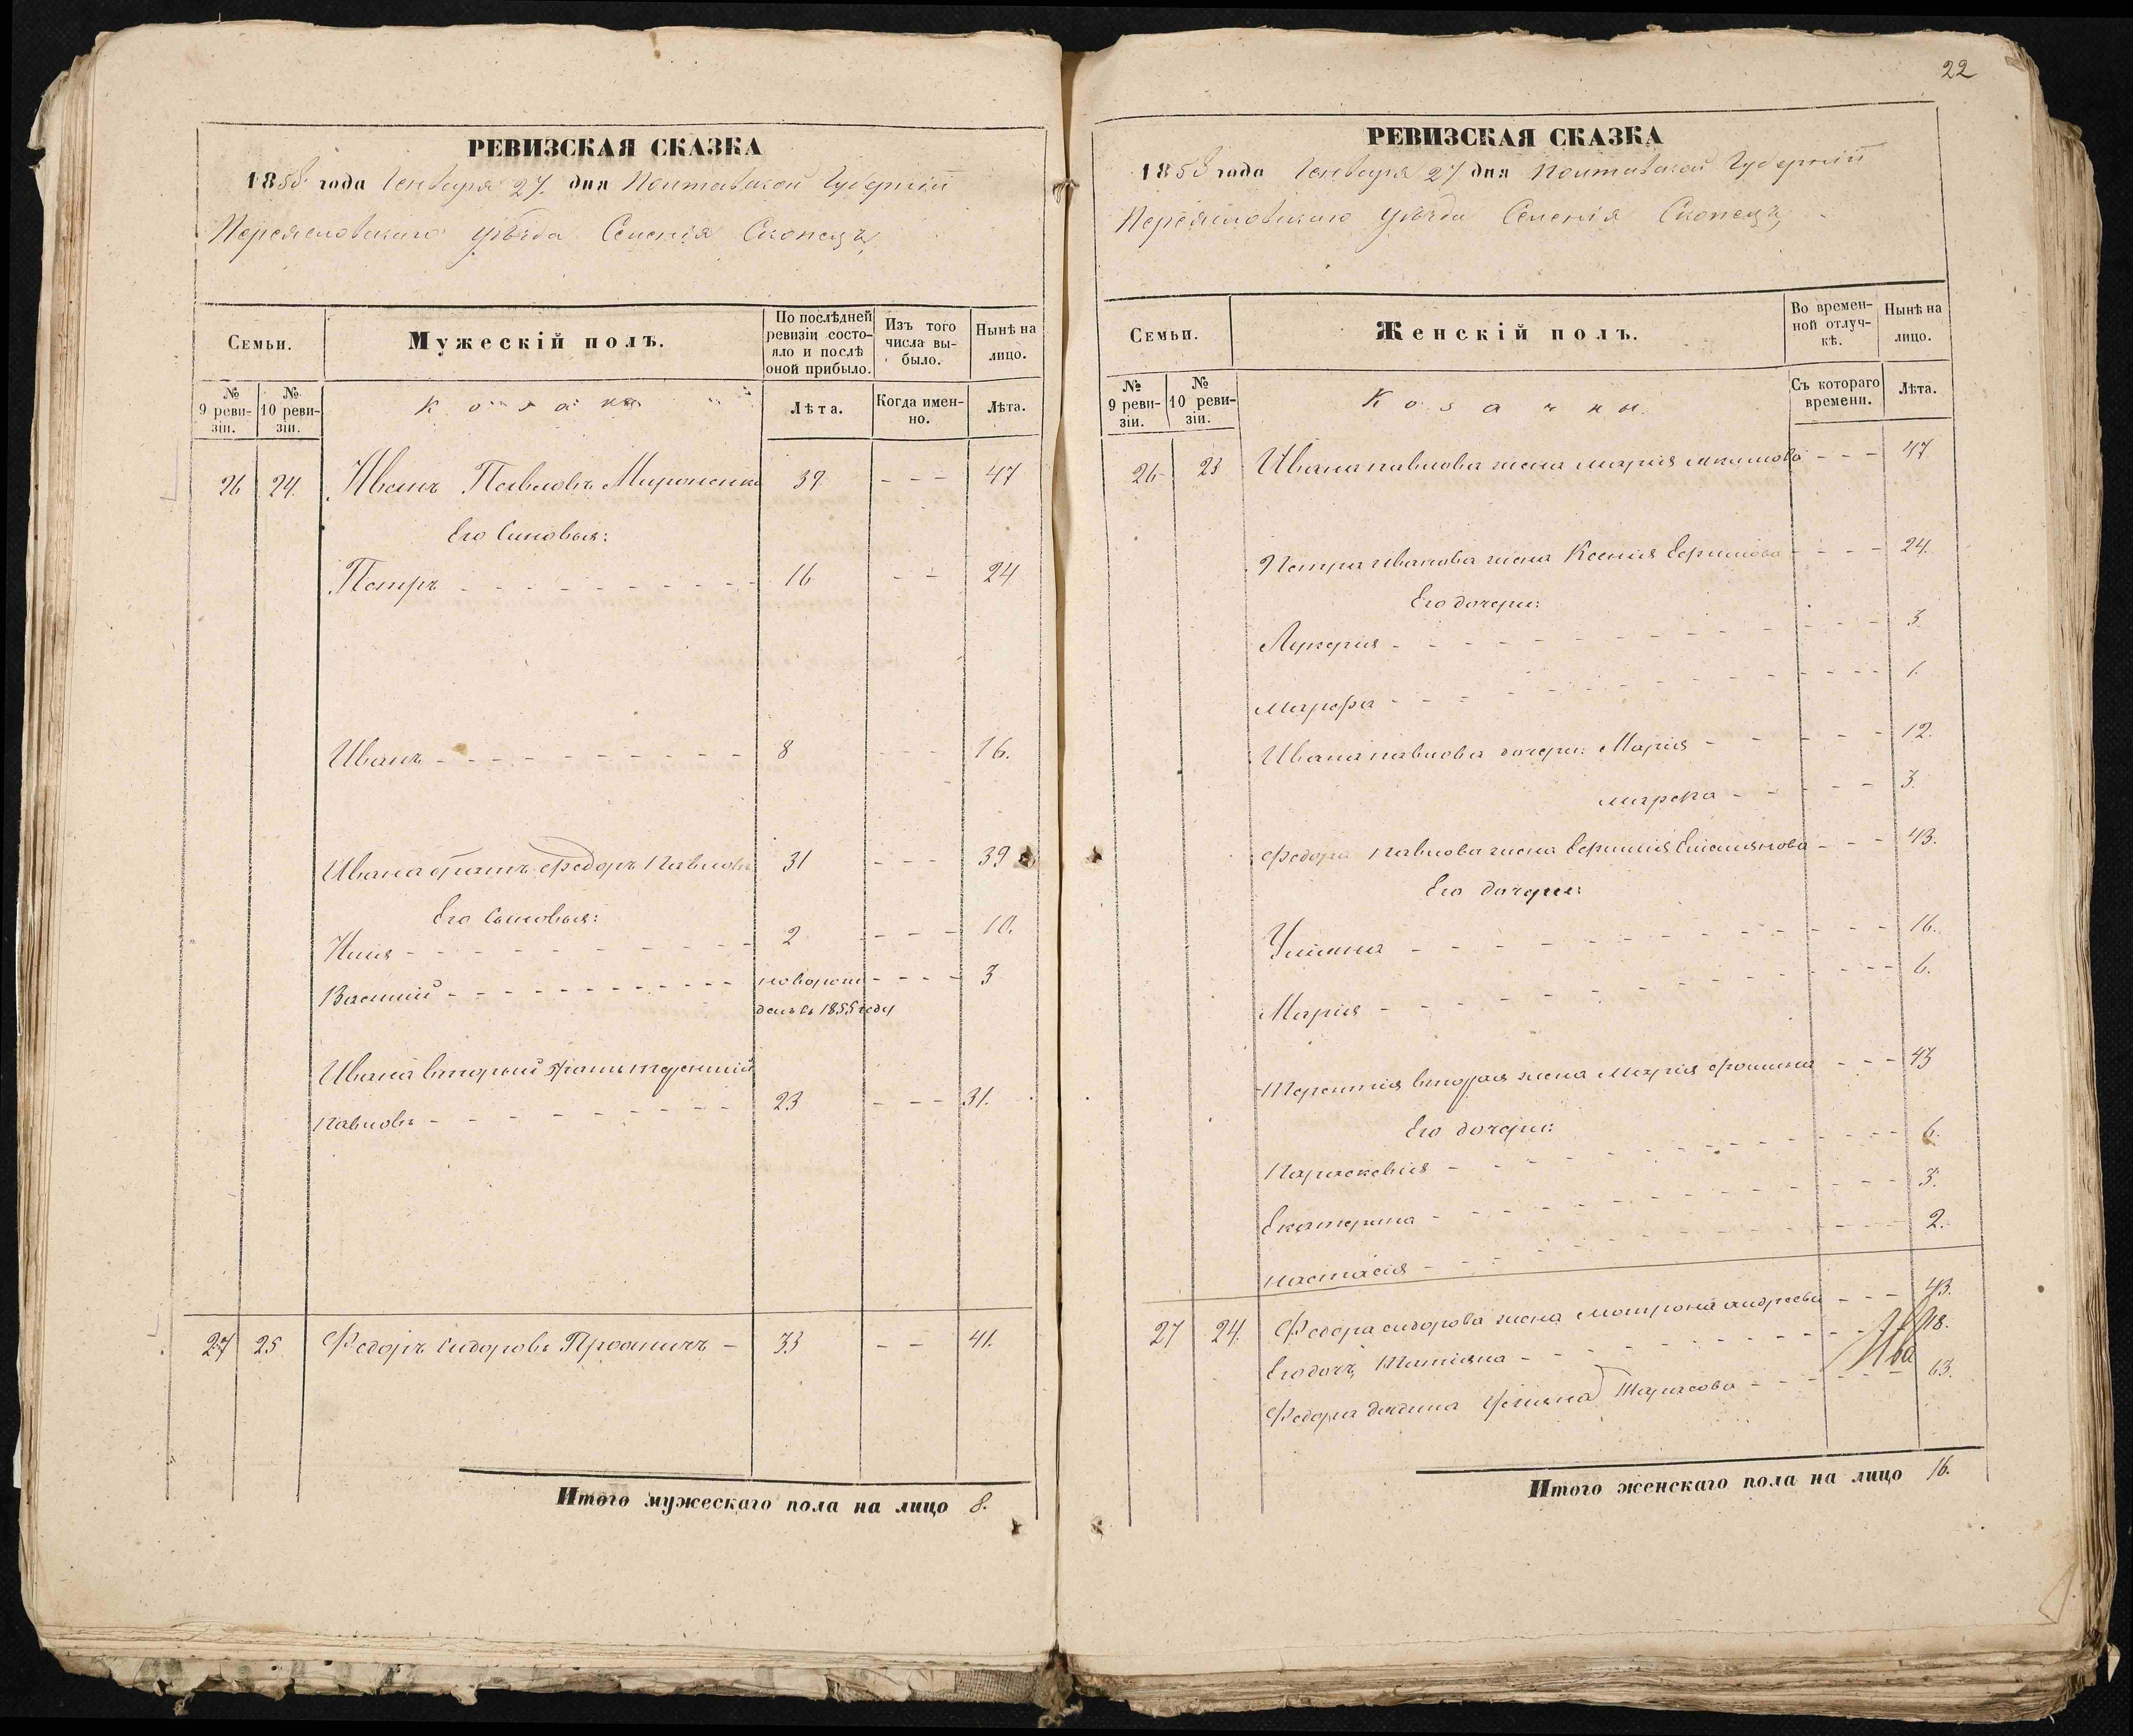 РЕВИЗСКАЯ СКАЗКА
1858 года Генваря 27 дня Полтавской Губерніи
Переяславскаго уѣзда Селенія Скопецъ,
Семьи.
Мужескій полъ.
По послѣдней ревизіи состояло и послѣ оной прибыло.
Изъ того числа выбыло.
Нынѣ на лицо.
№ 9 ревизіи.
№ 10 ревизіи.
Козаки
Лѣта.
Когда именно.
Лѣта.
26 24. Иванъ Павловъ Мироненко 39 - - - 47
Его Сыновья:
Петръ - - - 16 - - 24
Иванъ - - - 8 - - - 16.
Ивана братъ Федоръ Павловъ 31 - - - 39
Его Сыновья:
Илія - - - 2 - - - 10.
Василий - - - новорож - - - 3
денъ въ 1855 году
Ивана вторый братъ терентий
Павловъ - - - 23 - - - 31.
27 25 Федоръ Сидоровъ - 33 - - 41.
Итого мужескаго пола на лицо 8.
22
РЕВИЗСКАЯ СКАЗКА
1858 года Генваря 27 дня Полтавской Губерніи
Переяславскаго уѣзда Селенія Скопецъ,
Семьи.
Женскій полъ.
Во временной отлучкѣ.
Нынѣ на лицо.
№ 9 ревизіи.
№ 10 ревизіи.
Козачки.
Съ котораго времени.
Лѣта.
26 23 Ивана павлова жена марія - - - 47
Петра иванова жена Ксенія Ефимова - - - 24.
Его дочери:
Лукерія - - - 3
марфа - - - 1.
Ивана павлова дочери: Марія - - - 12.
- - - 3.
Федора павлова жена Евфимія Емельянова - - - 43.
Его дочери:
Ульяна - - - 16.
Марія - - - 6.
Терентія вторая жена Марія фомина - - - 43
Его дочери:
Параскевія - - - 6.
Екатерина - - - 3.
настасія - - - 2.
27 24. Федора сидорова жена мотрона андреева - - - 43.
Его дочь Татіяна - - - 18.
Федора Ульяна Тарасова - - - 63.
Итого женскаго пола на лицо 16.